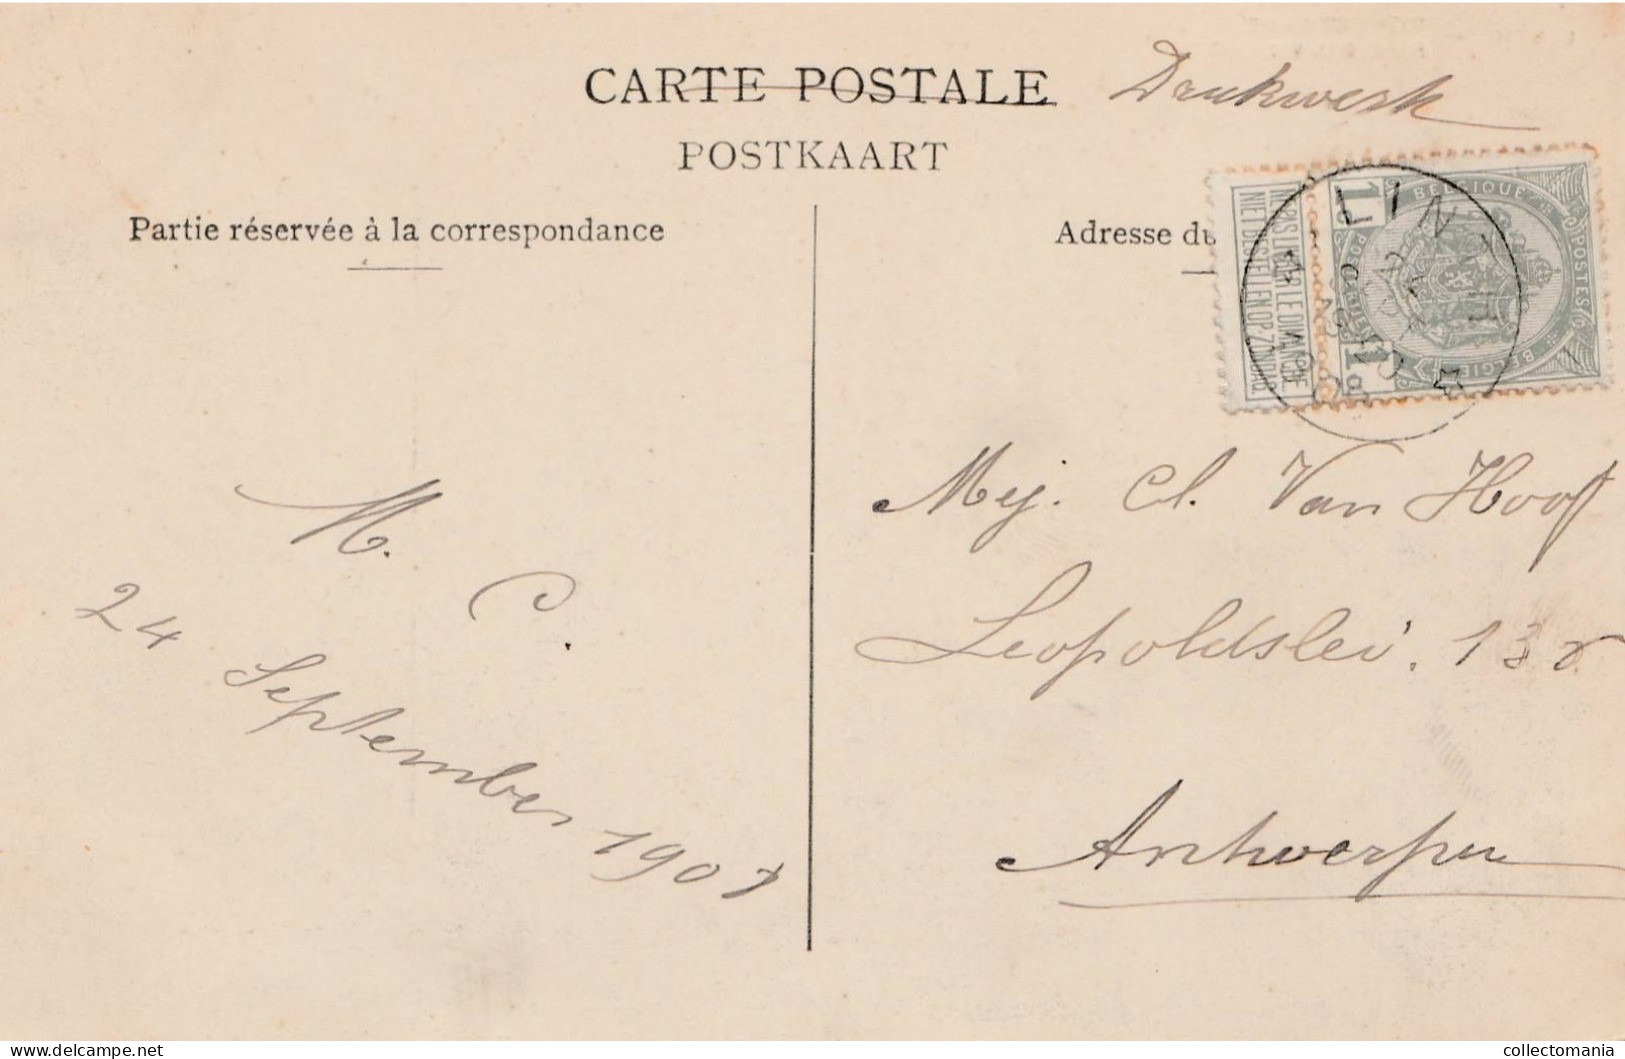 CARTE POSTALE
Drukwerk
POSTKAART
Partie réservée à la correspondance
Adresse du
BELGIQUE
POSTES
BELGIE
NE PAS LIVRER LE DIMANCHE
NIET BESTELLEN OP ZONDAG
M. C.
24 September 1907
Mej. Cl. Van Hooff
Leopoldslei. 13
Antwerpen
www.delcampe.net
collectomania